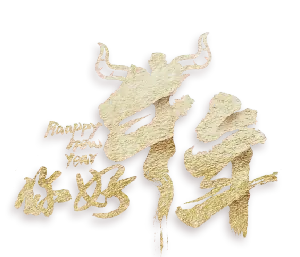 Happy
New
Year
你好牛年